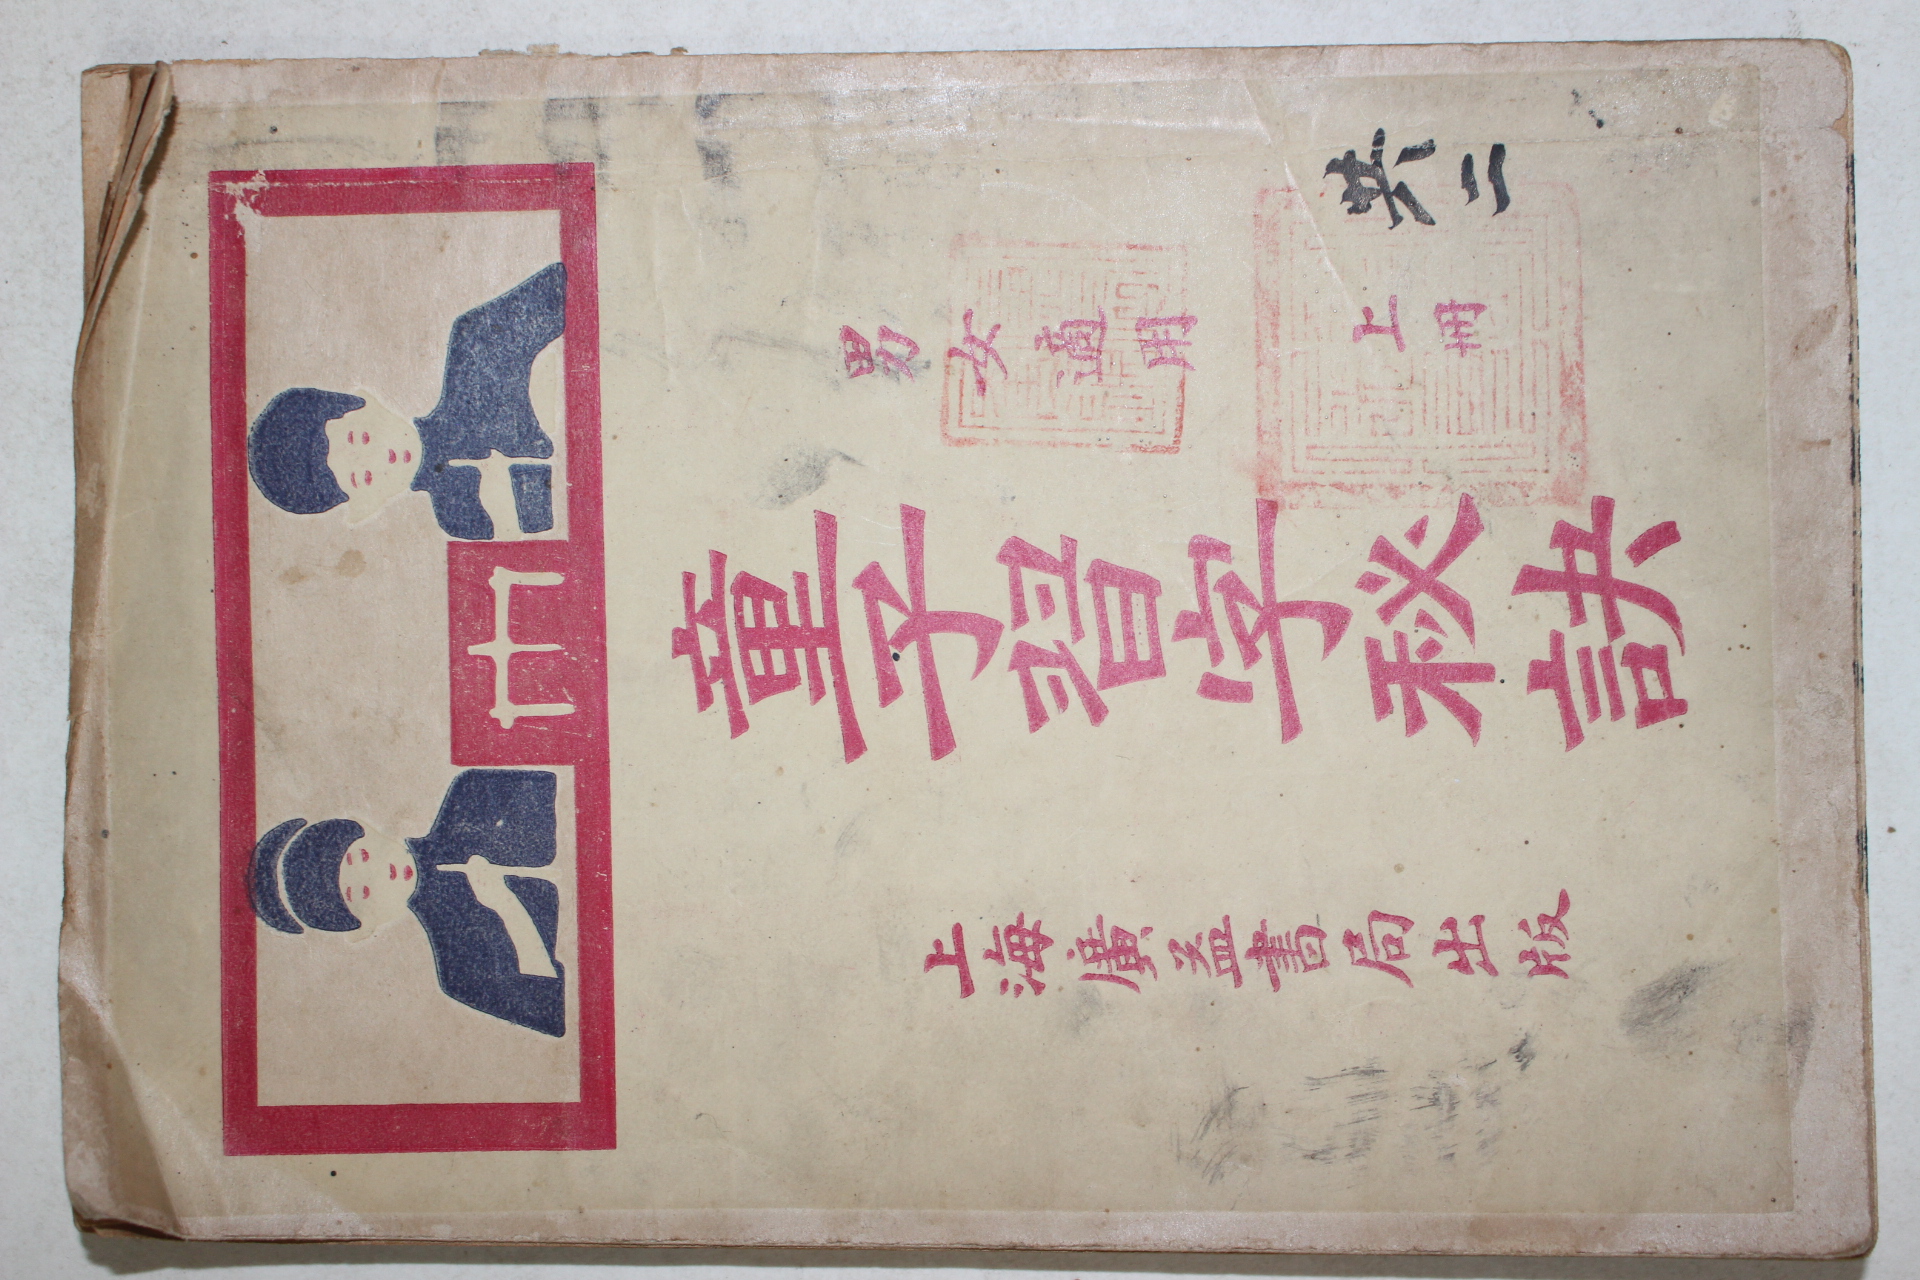 共二
男女適用 上冊
童子習字秘訣
上海廣益書局出版